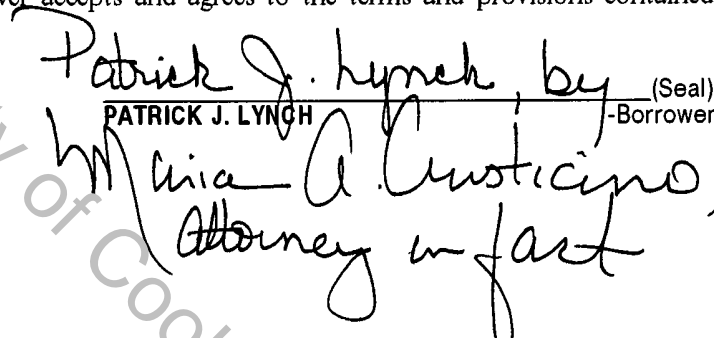 ver accepts and agrees to the terms and provisions contained
Patrick J. Lynch, by
(Seal)
PATRICK J. LYNCH -Borrower
Maria A.
Attorney in fact
y of Coo